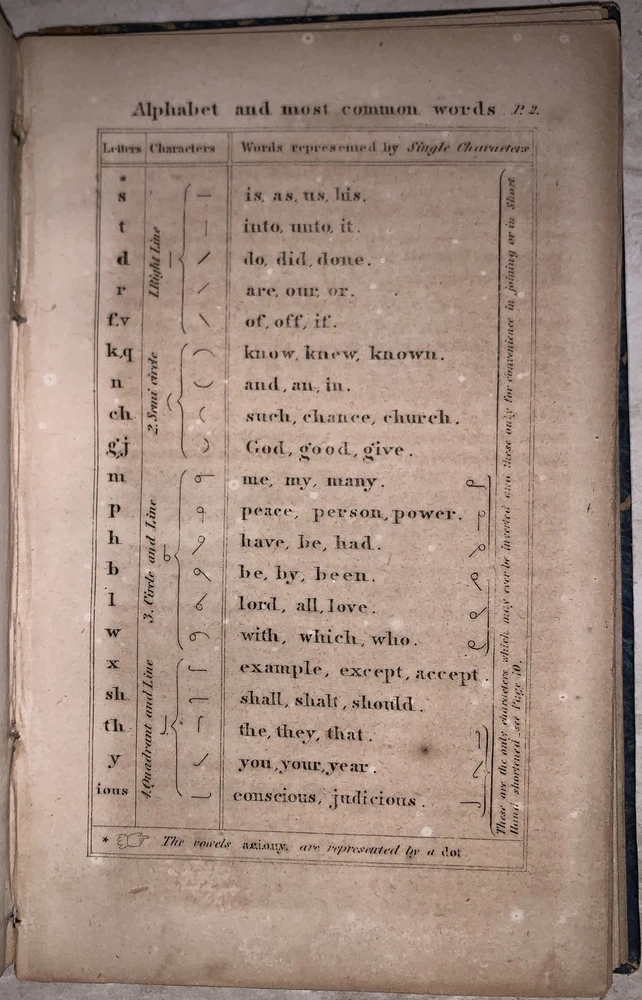 Alphabet and most common words P. 2.
Letters Characters Words represented by Single Characters
*
s is, as, us, his.
t into, unto, it.
d do, did, done.
r are, our, or.
f,v of, off, if.
1. Right Line
k,q know, knew, known.
n and, an, in.
ch such, chance, church.
g,j God, good, give.
2. Semi circle
m me, my, many.
p peace, person, power.
h have, he, had.
b be, by, been.
l lord, all, love.
w with, which, who.
3. Circle and Line
x example, except, accept.
sh shall, shalt, should.
th the, they, that.
y you, your, year.
ious conscious, judicious.
4. Quadrant and Line
These are the only characters which may ever be inverted and these only for convenience in joining or in Short
Hand shortened see Page 10.
* The vowels are represented by a dot